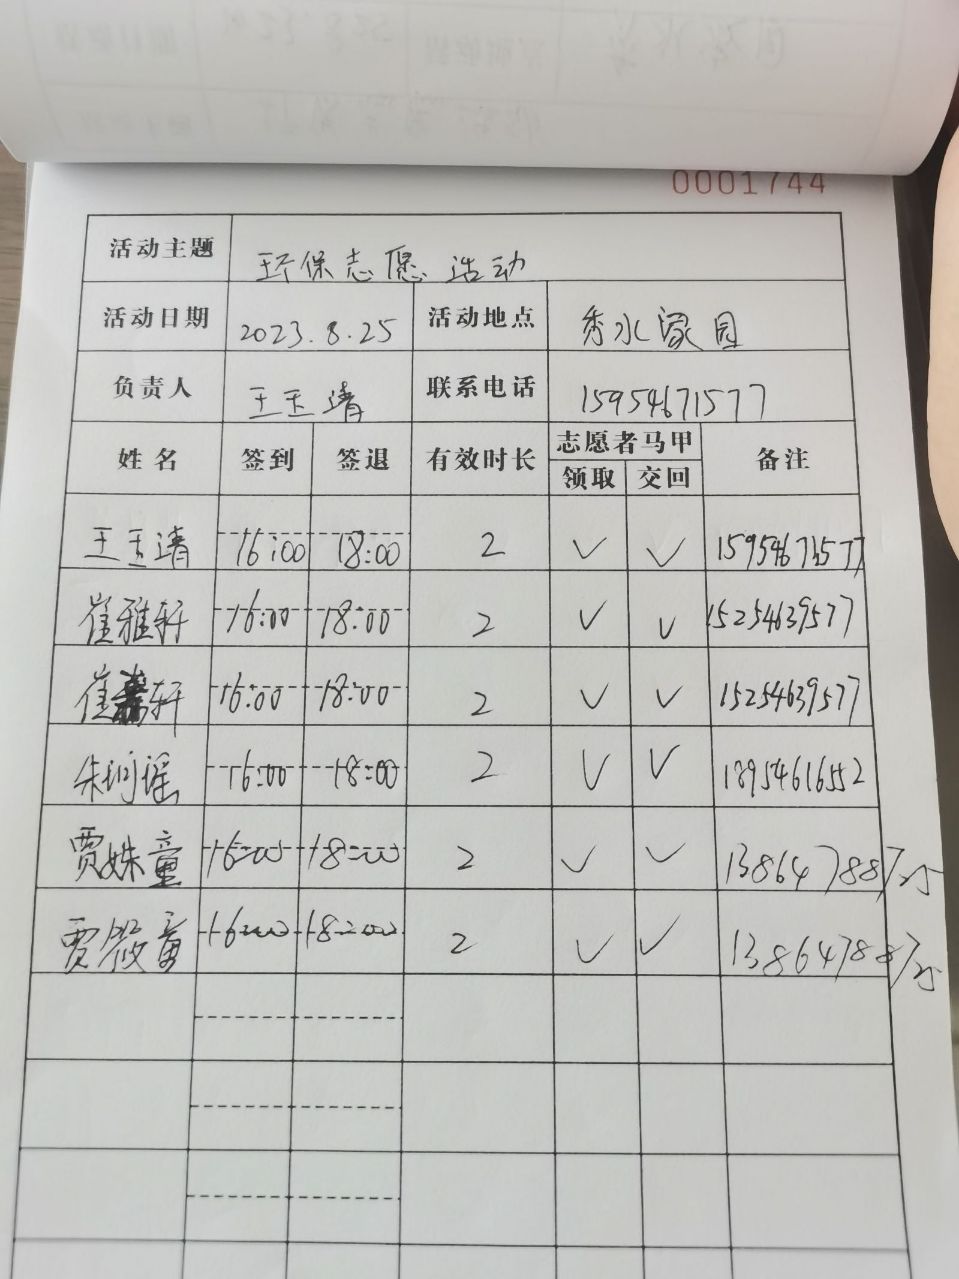 0001744
活动主题 环保志愿活动
活动日期 2023.8.25 活动地点 秀水家园
负责人 王玉清 联系电话 15954671577
姓名 签到 签退 有效时长 志愿者马甲 备注
领取 交回
王玉清 16:00 18:00 2 ✓ ✓
崔雅轩 16:00 18:00 2 ✓ ✓ 15254639577
崔 轩 16:00 18:00 2 ✓ ✓ 15254639577
朱珂瑶 16:00 18:00 2 ✓ ✓ 18954616552
贾姝童 16:00 18:00 2 ✓ ✓
贾筱童 16:00 18:00 2 ✓ ✓